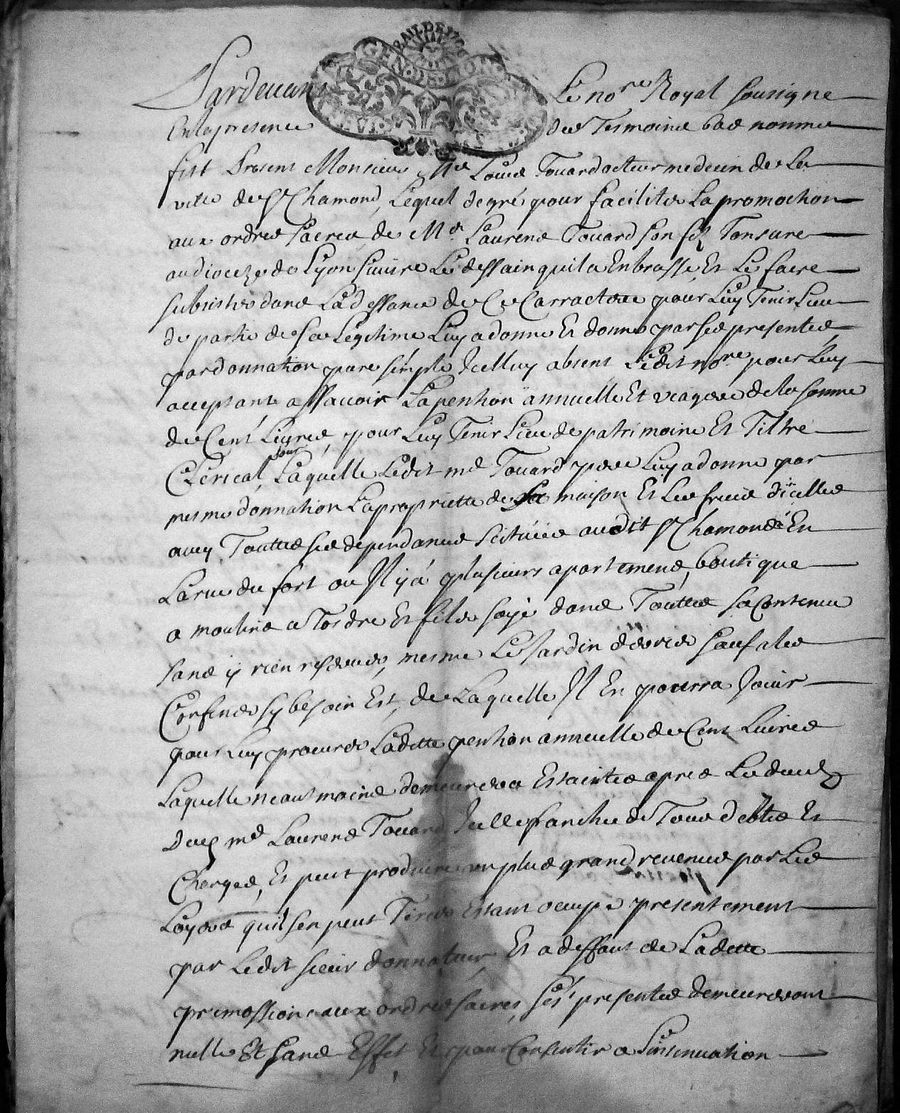 Pardevant Le no.re Royal soussigne
En la presence des Tesmoins bas nommes
fust Present Monsieur Me Louis Touard docteur medecin de La
ville de St Chamond, Lequel de gré pour faciliter La promotion
aux ordres sacres de Me Laurens Touard son filz Tonsure
au dioceze de Lyon suivre Le dessain quil a Enbrassé, Et Le faire
subsister dans La dessance de Ce Carractere pour Luy Tenir Lieu
de partie de sa Legitime Luy a donne Et donne par ses presentes
par donnation pure simple Icelluy absent Ledit no.re pour Luy
acceptant assavoir La pention annuelle Et viagere de la somme
de Cent Livres, pour Luy Tenir Lieu de patrimoine Et Tiltre
Clerical, pour Laquelle Ledit me Touard pere Luy a donne par
mesme donnation La propriette de sa maison Et Les fruis d'icelles
avec Touttes ses dependances scituée audit St Chamond En
La rue du fort ou Il y a plusieurs apartemens, boutique
a moulins a Tordre Et filer soye dans Toutte sa Contenue
sans y rien reserver, mesme Le Jardin derrier sauf a les
Confiner sy besoin Est, de Laquelle Il En pourra Jouir
pour Luy procurer Ladette pention annuelle de Cent Livres
Laquelle neaumoins demeurera Estainte apres Le deceds
dud me Laurens Touard Icelle franche de Tous debtes Et
Charges, Et peut produire un plus grand revenue par Les
Loyers quil sen peut Tirer Estant ocupé presentement
par Ledit sieur donnateur Et a deffaut de Ladette
promossion aux ordres sacres, ses presentes demeureront
nulle Et sans Effet Et pour Consentir a Linsinuation